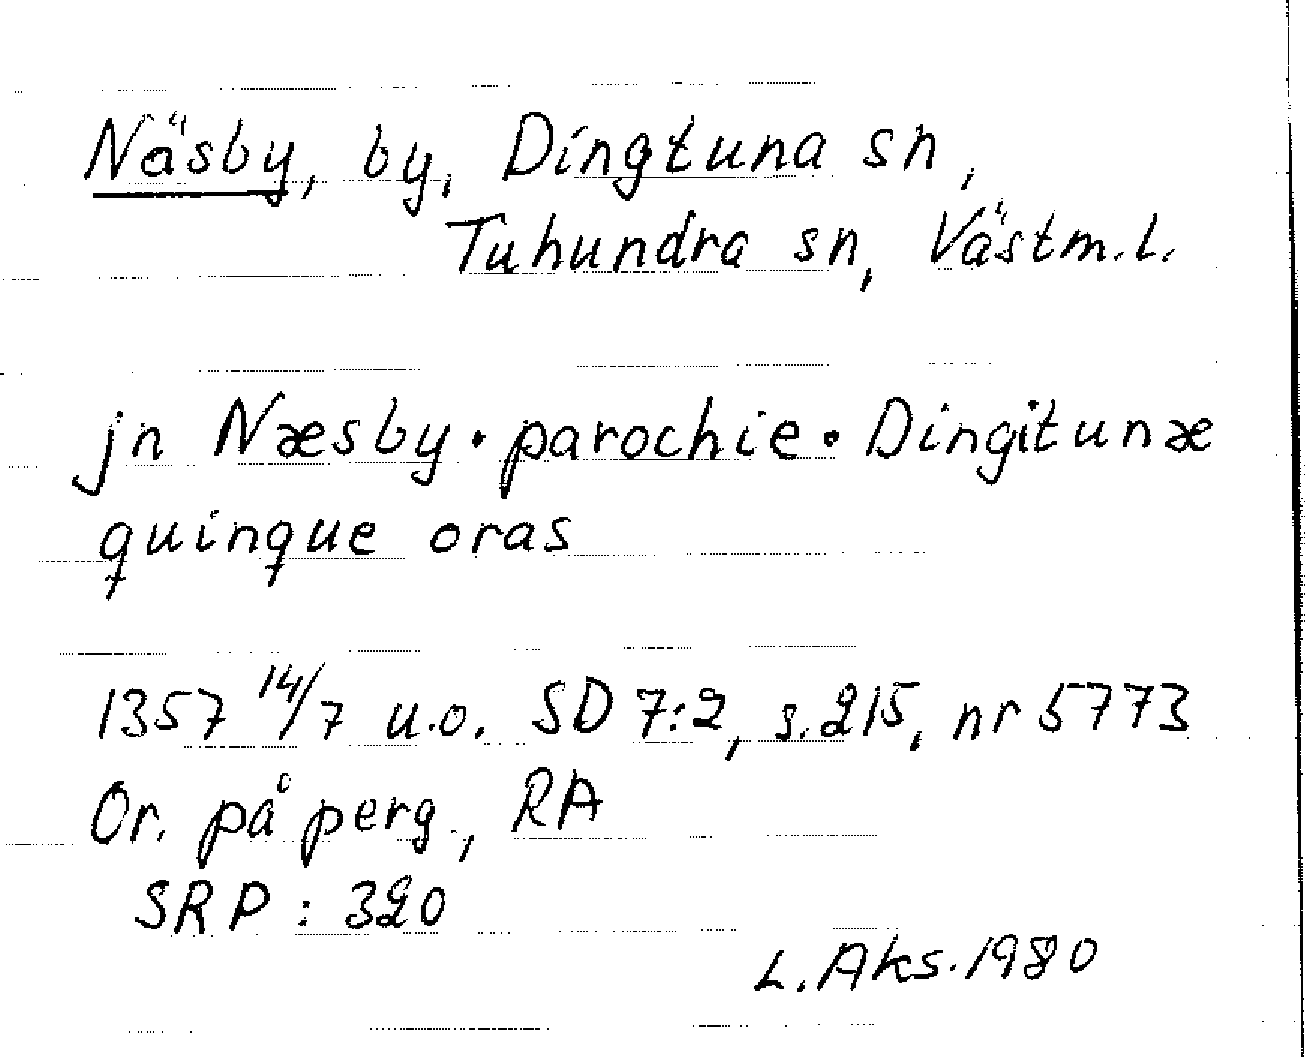 Näsby, by, Dingtuna sn,
Tuhundra sn, Västm.l.
jn Næsby • parochie • Dingitunæ
quinque oras
1357 14/7 u.o. SD 7:2, s.215, nr 5773
Or. på perg., RA
SRP : 320
L. Aks. 1980